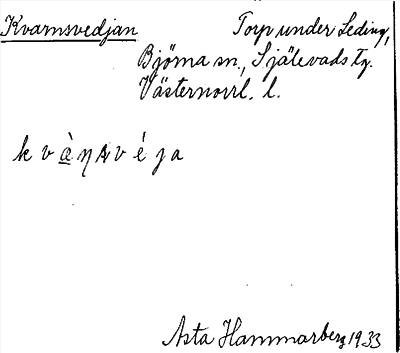 Kvarnsvedjan Torp under Leding,
Bjöma sn., Själevads tg.
Västernorrl. l.
k v à ŋ s v é j a
Asta Hammarberg 1933